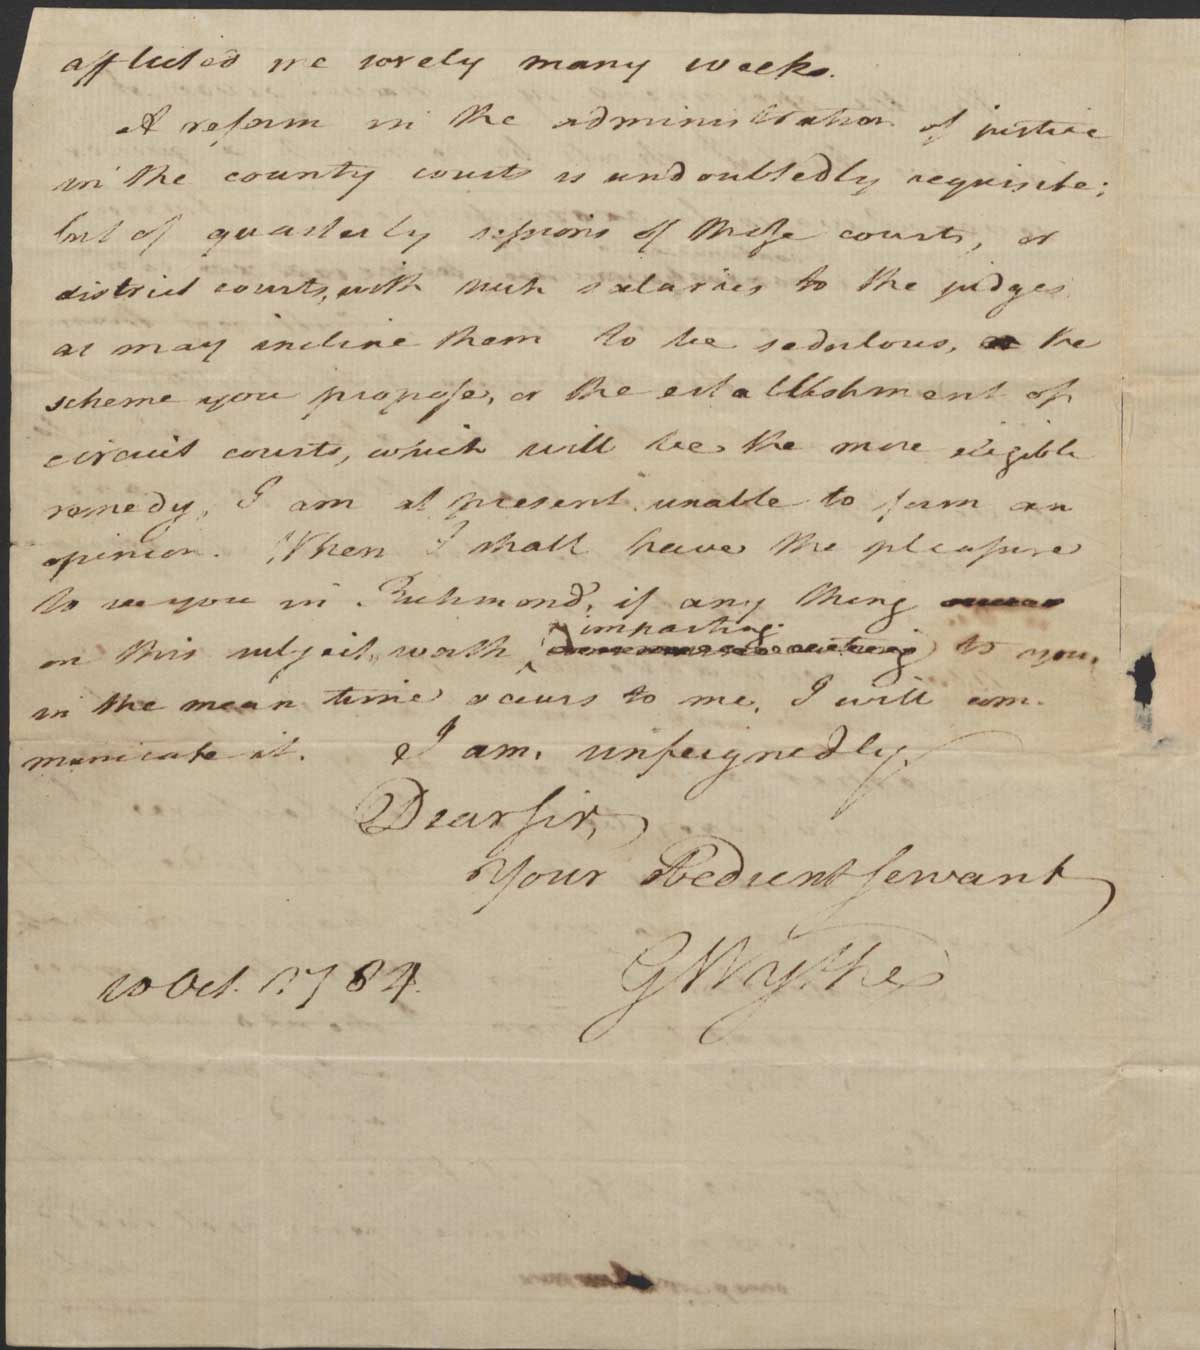 afflicted me sorely many weeks.
A reform in the administration of justice
in the county courts is undoubtedly requisite;
but of quarterly sessions of those courts, or
district courts, with such salaries to the judges
as may incline them to be sedulous, or the
scheme you propose, or the establishment of
circuit courts, which will be the more eligible
remedy, I am at present unable to form an
opinion. When I shall have the pleasure
to see you in Richmond, if any thing
imparting
on this subject, worth to you,
in the mean time occurs to me, I will com-
municate it. I am, unfeignedly,
Dear sir,
Your obedient servant
GWythe
10 Oct. 1784.